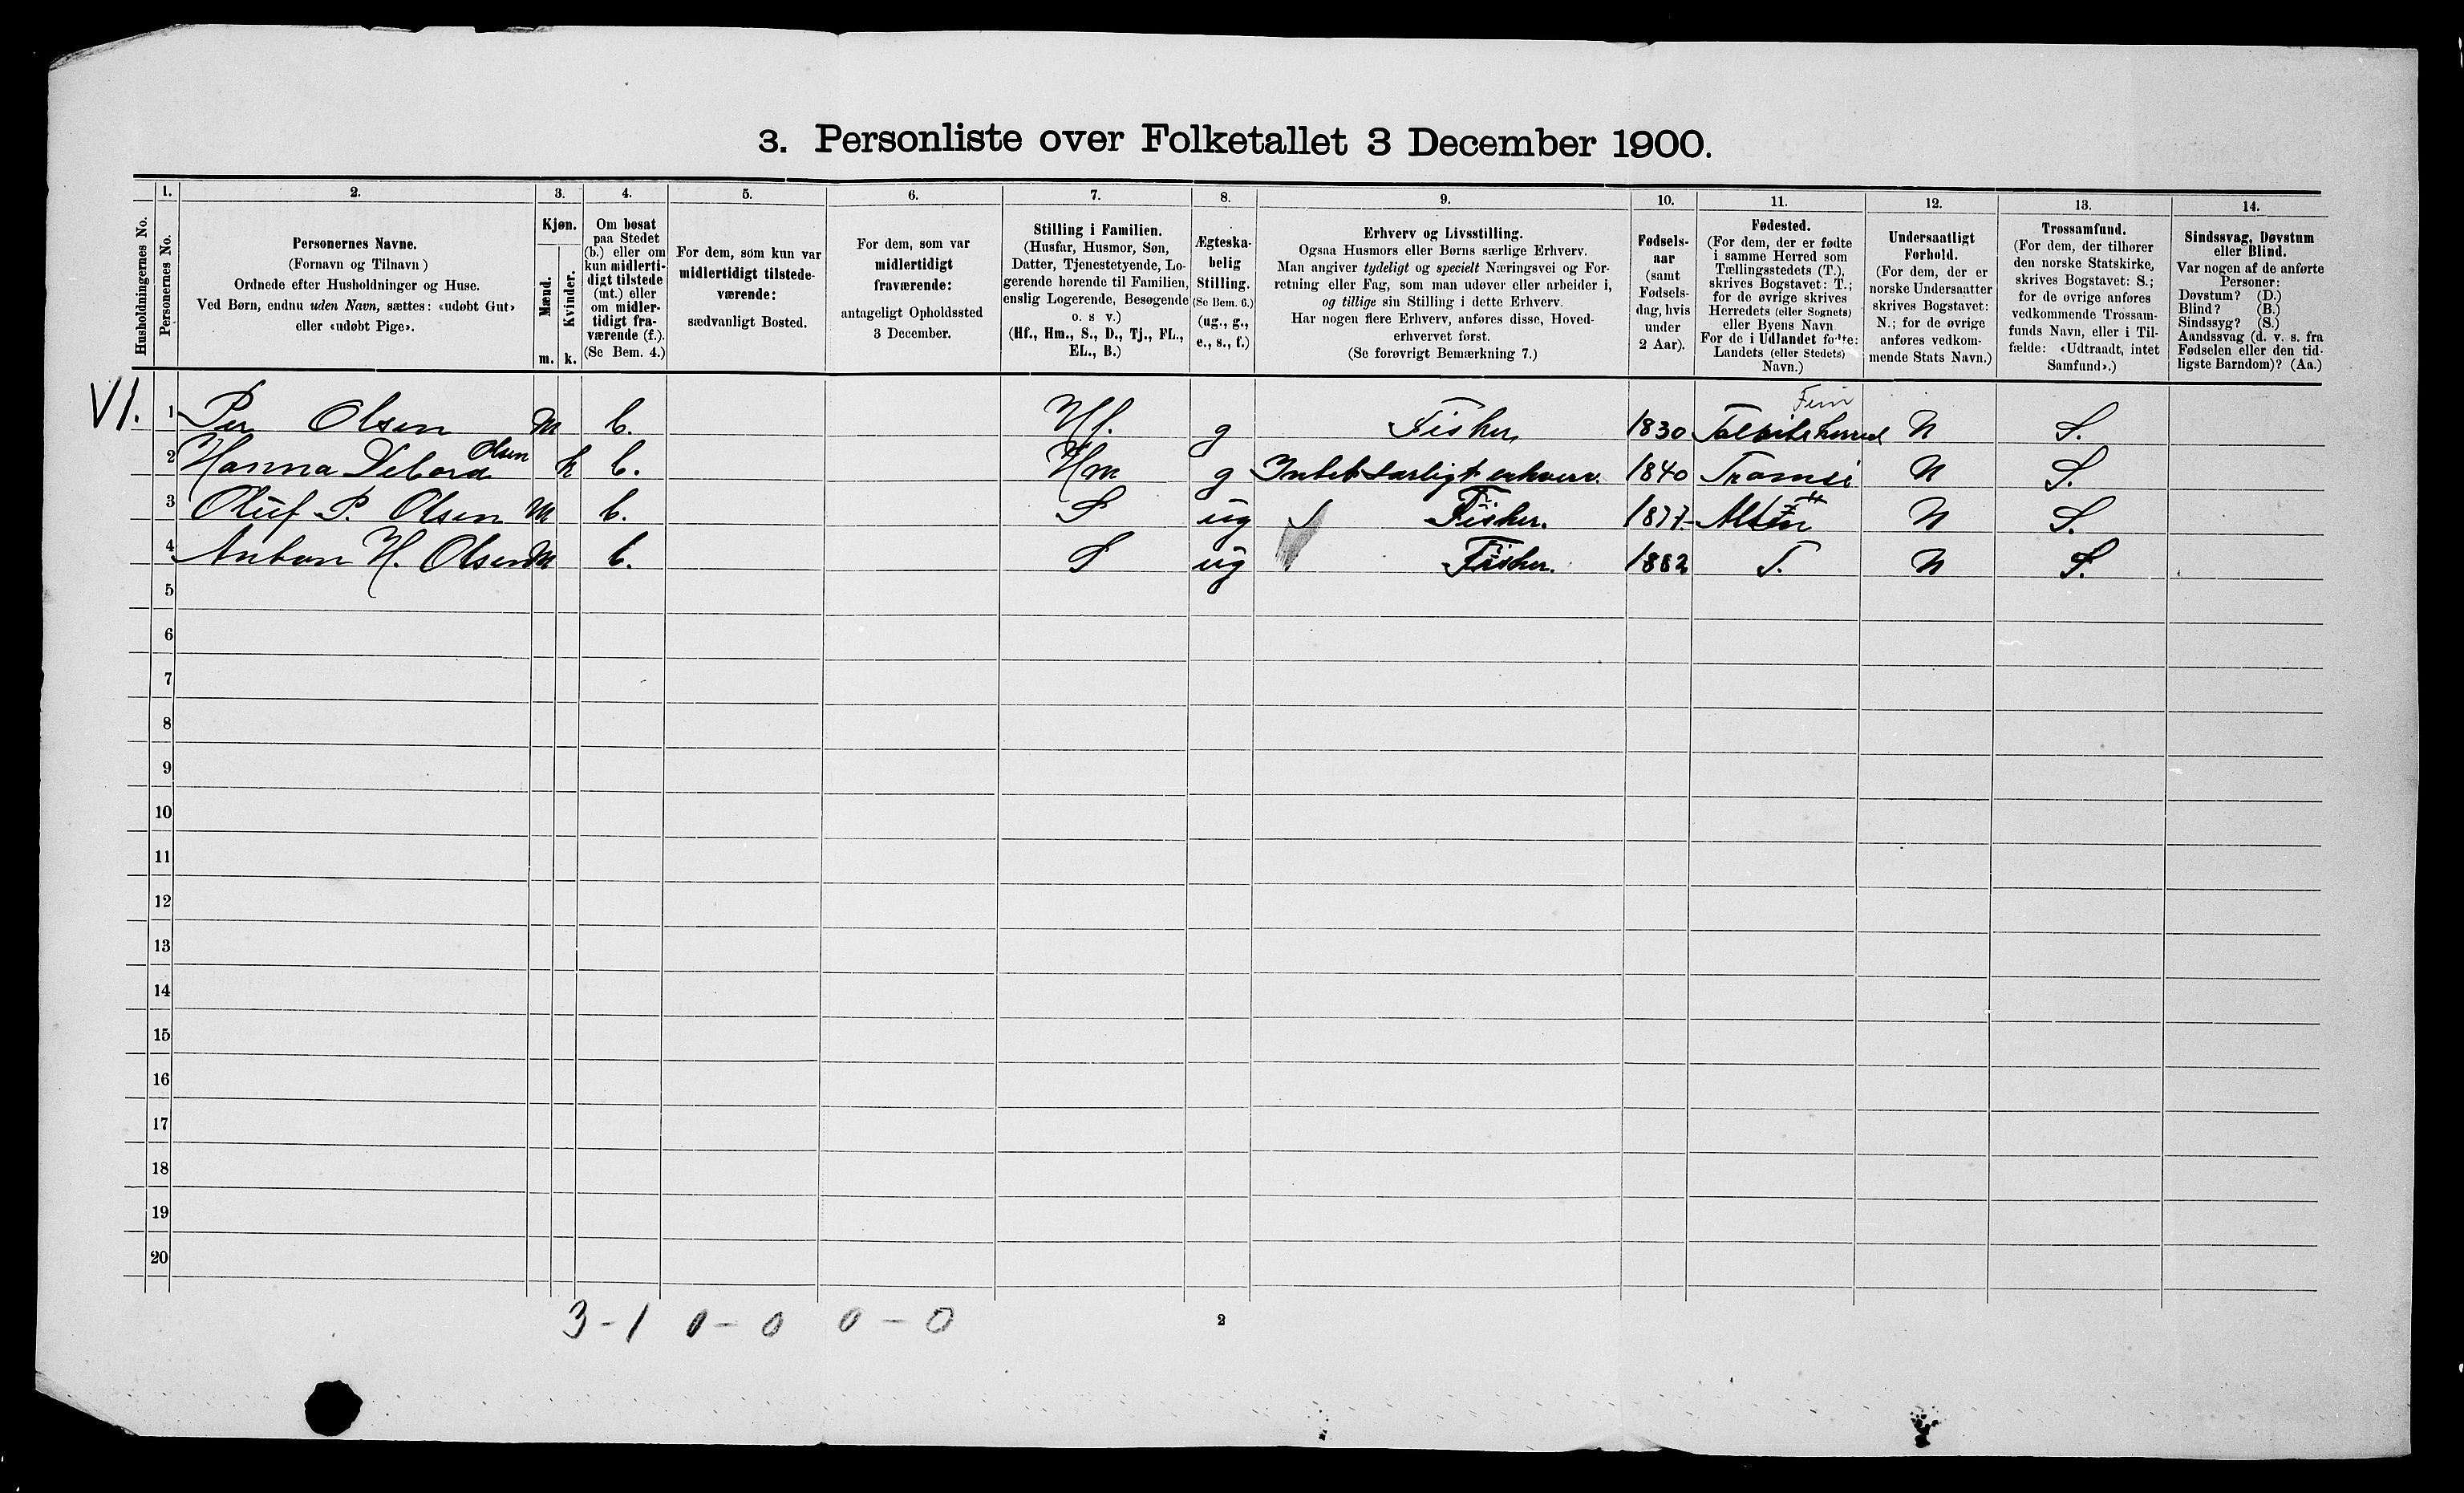 3. Personliste over Folketallet 3 December 1900.
1. 2. 3. 4. 5. 6. 7. 8. 9. 10. 11. 12. 13. 14.
Husholdningernes No.
Personernes No.
Personernes Navne.
(Fornavn og Tilnavn )
Ordnede efter Husholdninger og Huse.
Ved Børn, endnu uden Navn, sættes: «udøbt Gut»
eller «udøbt Pige».
Kjøn.
Mænd.
Kvinder.
m. k.
Om bosat
paa Stedet
(b.) eller om
kun midlerti-
digt tilstede
(mt.) eller
om midler-
tidigt fra-
værende (f.).
(Se Bem. 4.)
For dem, som kun var
midlertidigt tilstede-
værende:
sædvanligt Bosted.
For dem, som var
midlertidigt
fraværende:
antageligt Opholdssted
3 December.
Stilling i Familien.
(Husfar, Husmor, Søn,
Datter, Tjenestetyende, Lo-
gerende hørende til Familien,
enslig Logerende, Besøgende
o. s v.)
(Hf., Hm., S., D., Tj., FL.,
EL., B.)
Ægteska-
belig
Stilling.
(Se Bem. 6.)
(ug., g.,
e., s., f.)
Erhverv og Livsstilling.
Ogsaa Husmors eller Børns særlige Erhverv.
Man angiver tydeligt og specielt Næringsvei og For-
retning eller Fag, som man udøver eller arbeider i,
og tillige sin Stilling i dette Erhverv.
Har nogen flere Erhverv, anføres disse, Hoved-
erhvervet først.
(Se forøvrigt Bemærkning 7.)
Fødsels-
aar
(samt
Fødsels-
dag, hvis
under
2 Aar).
Fødested.
(For dem, der er fødte
i samme Herred som
Tællingsstedets (T.),
skrives Bogstavet: T.;
for de øvrige skrives
Herredets (eller Sognets)
eller Byens Navn
For de i Udlandet fødte:
Landets (eller Stedets)
Navn.)
Undersaatligt
Forhold.
(For dem, der er
norske Undersaatter
skrives Bogstavet:
N.; for de øvrige
anføres vedkom-
mende Stats Navn.)
Trossamfund.
(For dem, der tilhører
den norske Statskirke,
skrives Bogstavet: S.;
for de øvrige anføres
vedkommende Trossam-
funds Navn, eller i Til-
fælde: «Udtraadt, intet
Samfund».)
Sindssvag, Døvstum
eller Blind.
Var nogen af de anførte
Personer:
Døvstum? (D.)
Blind? (B.)
Sindssyg? (S.)
Aandssvag (d. v. s. fra
Fødselen eller den tid-
ligste Barndom)? (Aa.)
VI. 1 Per Olsen m b. Hf. g Fisker 1830 N S.
2 Hanna Olsen k b. Hm g Intet særligt erhverv. 1840 Tromsö N S.
3 Oluf P. Olsen m b. S ug Fisker. 1877 Alten N S.
4 Anton H. Olsen m b. S ug Fisker. 1882 T. N S.
5
6
7
8
9
10
11
12
13
14
15
16
17
18
19
20
3 - 1 0 - 0 0 - 0
2